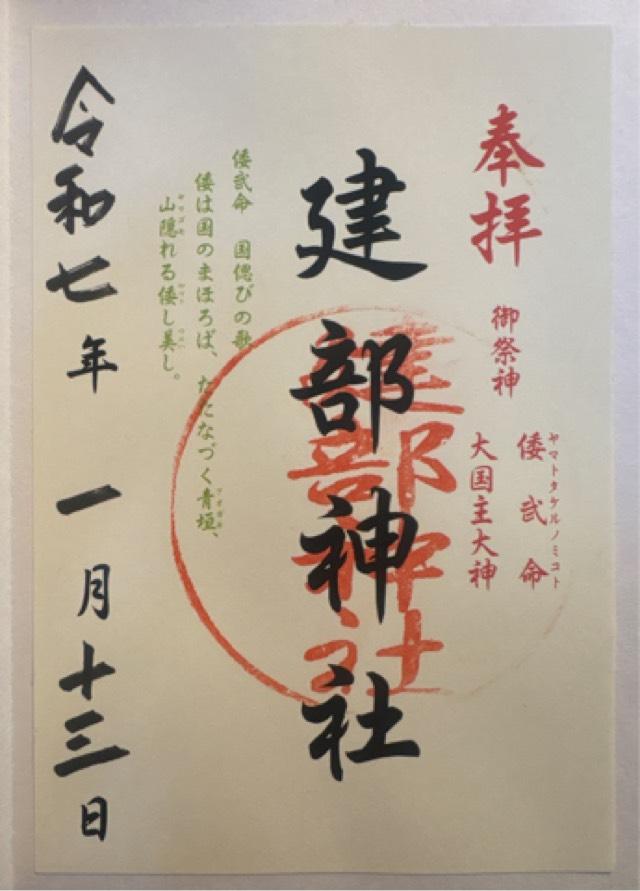 奉拝
御祭神
ヤマトタケルノミコト
倭武命
大国主大神
建部神社
建部神社
倭武命 国偲びの歌
倭は国のまほろば、たたなづく青垣、
アオガキ
山隠れる倭し美し。
令和七年 一月十三日